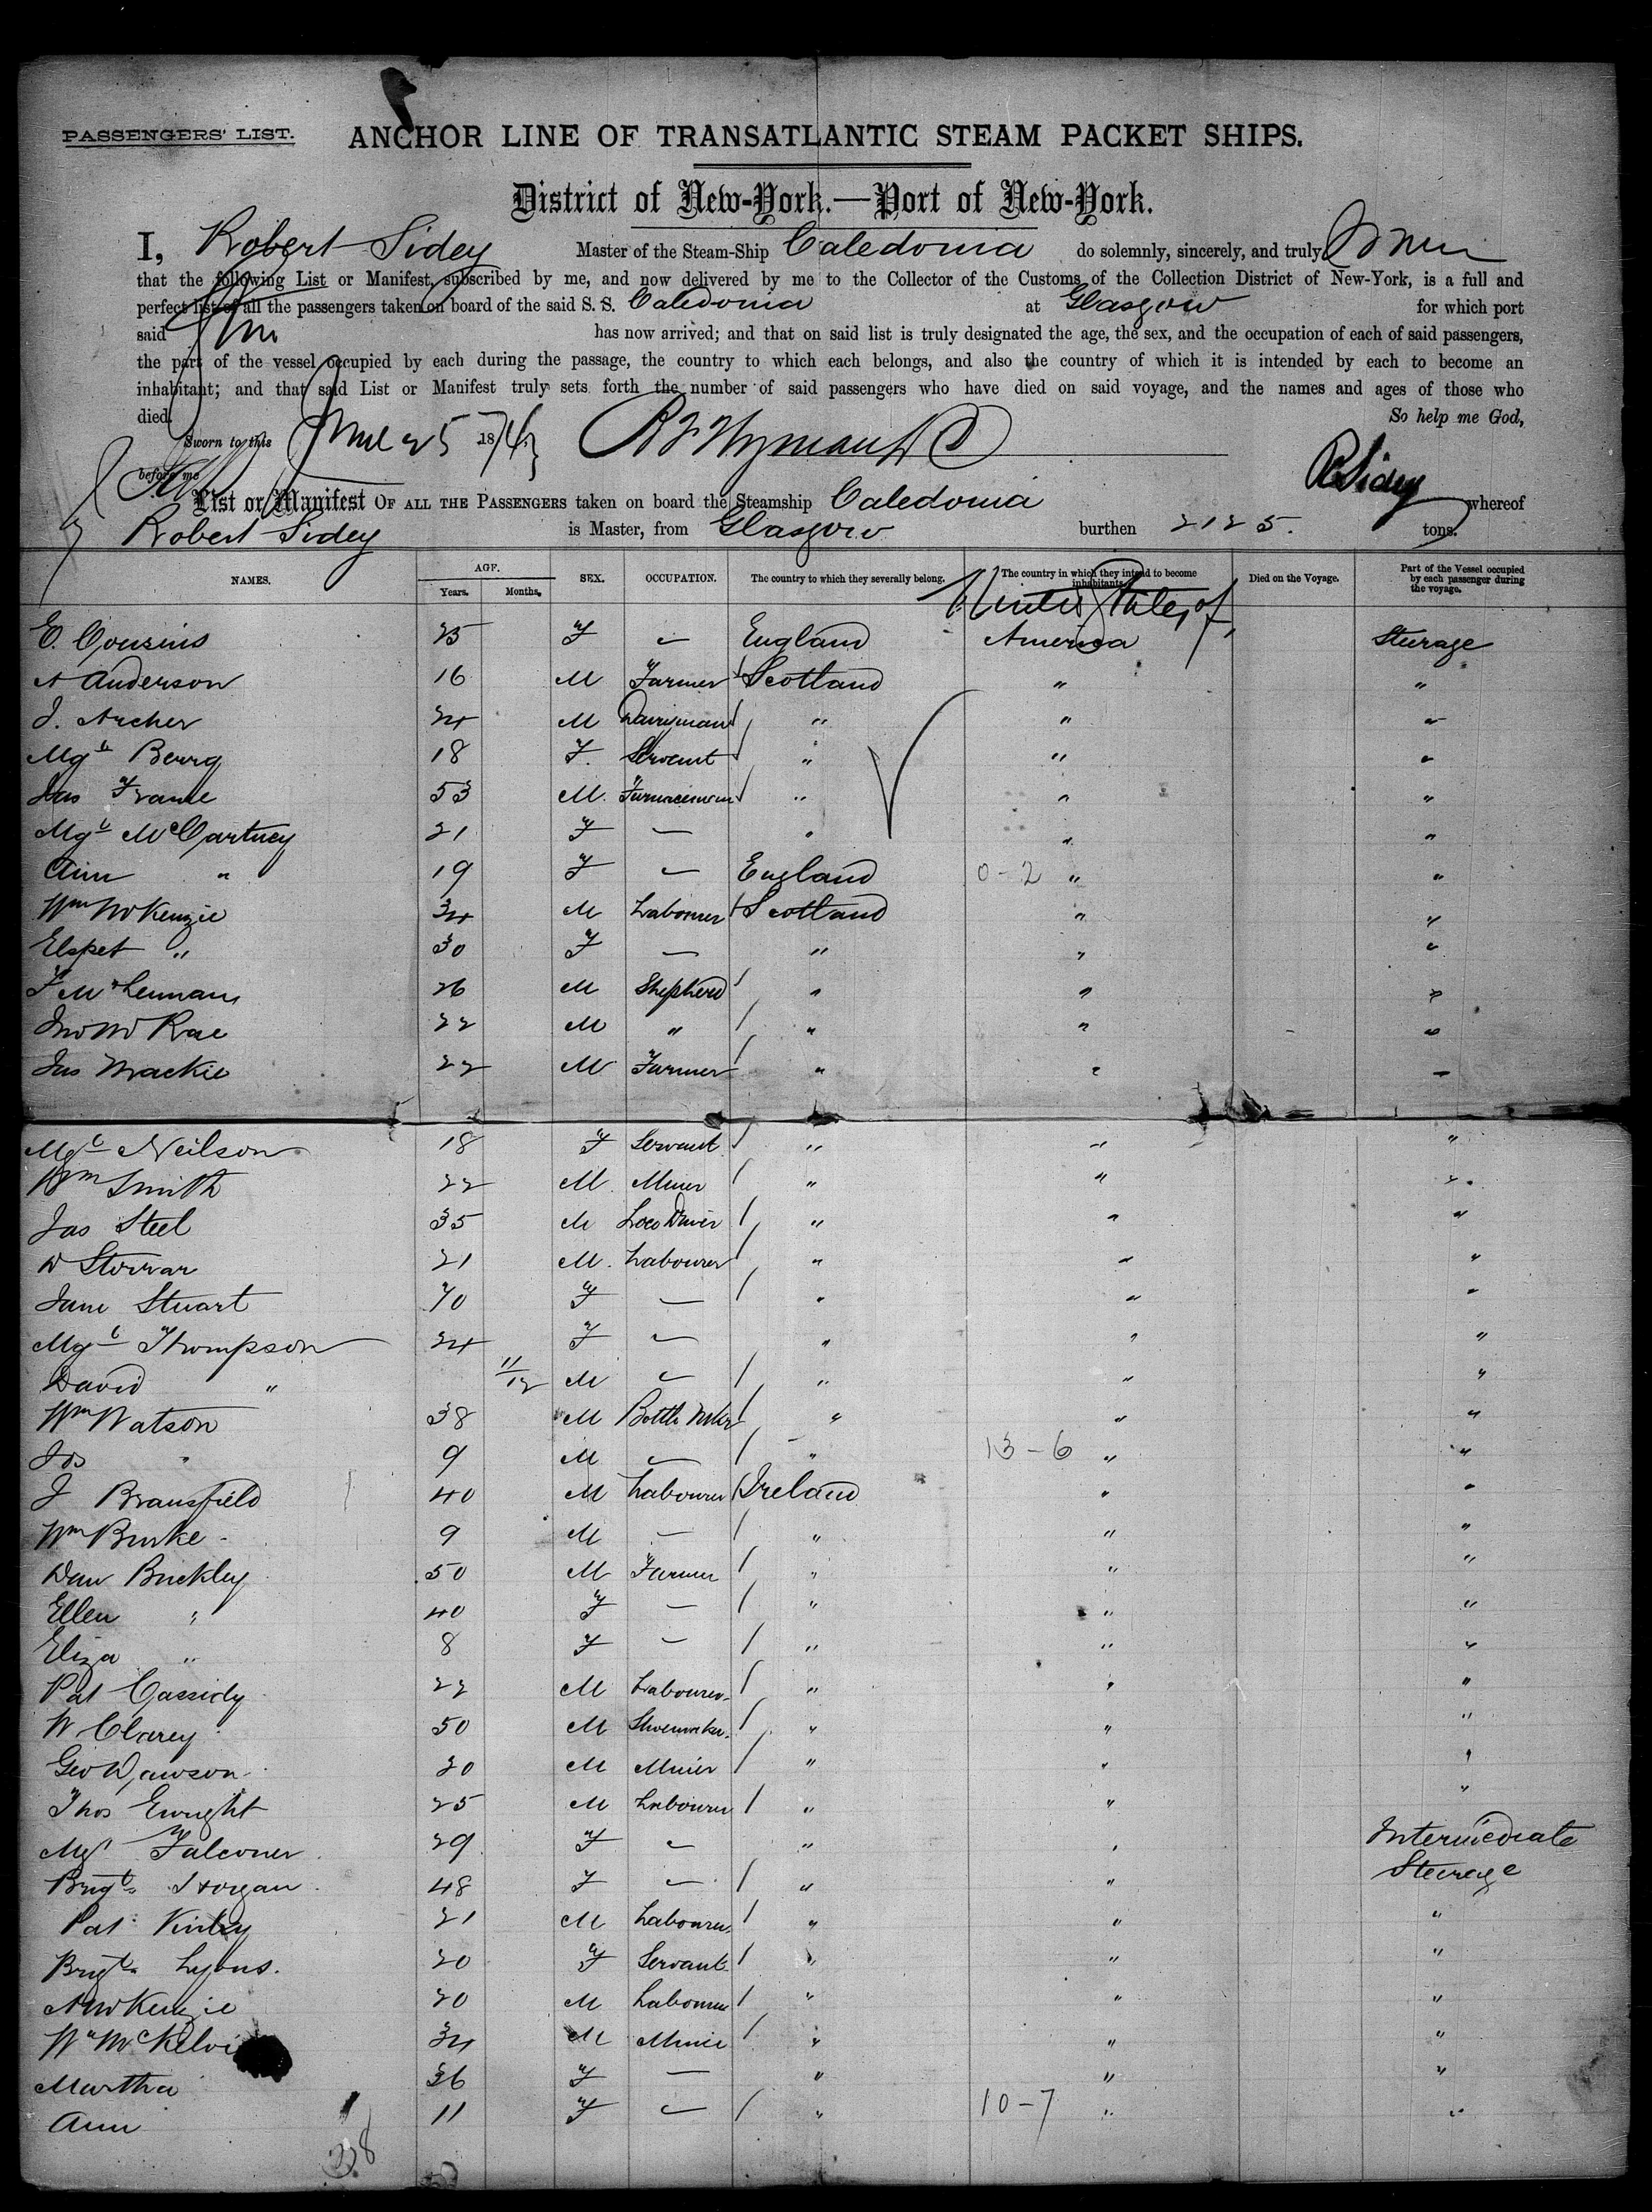 PASSENGERS' LIST. ANCHOR LINE OF TRANSATLANTIC STEAM PACKET SHIPS.
District of New-York.—Port of New-York.
I, Robert Sidey Master of the Steam-Ship Caledonia do solemnly, sincerely, and truly
that the following List or Manifest, subscribed by me, and now delivered by me to the Collector of the Customs of the Collection District of New-York, is a full and
perfect list of all the passengers taken on board of the said S. S. Caledonia at Glasgow for which port
said has now arrived; and that on said list is truly designated the age, the sex, and the occupation of each of said passengers,
the part of the vessel occupied by each during the passage, the country to which each belongs, and also the country of which it is intended by each to become an
inhabitant; and that said List or Manifest truly sets forth the number of said passengers who have died on said voyage, and the names and ages of those who
died. So help me God,
Sworn to this June 25 1874
before me R Sidey
List or Manifest OF ALL THE PASSENGERS taken on board the Steamship Caledonia whereof
Robert Sidey is Master, from Glasgow burthen 2125. tons.
NAMES. AGE. Years. Months. SEX. OCCUPATION. The country to which they severally belong. The country in which they intend to become inhabitants. Died on the Voyage. Part of the Vessel occupied by each passenger during the voyage.
United States of
E. Cousins 25 F — England America Steerage
A Anderson 16 M Farmer Scotland " "
J. Archer 24 M Dairyman " " "
Mgt Berry 18 F. Servant " " "
Jas Frame 53 M. Furnaceman " " "
Mgt McCartney 21 F — " " "
Ann " 19 F — England 0-2 " "
Wm McKenzie 34 M Labourer Scotland " "
Elspet " 30 F — " " "
F McLennan 26 M Shepherd " " "
Jno McRae 22 M " " " "
Jas Mackie 22 M Farmer " " "
Mgt Neilson 18 F Servant " " "
Wm Smith 22 M. Miner " " "
Jas Steel 35 M Loco Driver " " "
D Storrar 21 M. Labourer " " "
Jane Stuart 70 F — " " "
Mgt Thompson 24 F — " " "
David " 11/12 M — " " "
Wm Watson 38 M Bottle Mkr " " "
Jos " 9 M — " 13-6 " "
J Bransfield 40 M Labourer Ireland " "
Wm Burke 9 M — " " "
Dan Buckley 50 M Farmer " " "
Ellen " 40 F — " " "
Eliza " 8 F — " " "
Pat Cassidy 22 M Labourer " " "
W Clarey 50 M Shoemaker " " "
Geo Dawson 20 M Miner " " "
Thos Enright 25 M Labourer " " "
Mgt Falconer 29 F — " " Intermediate
Brigt Horgan 48 F — " " Steerage
Pat Kirby 21 M Labourer " " "
Brigt Lyons. 20 F Servant " " "
A McKenzie 20 M Labourer " " "
Wm McKelvi 34 M Miner " " "
Martha 36 F — " " "
Ann 11 F — " 10-7 " "